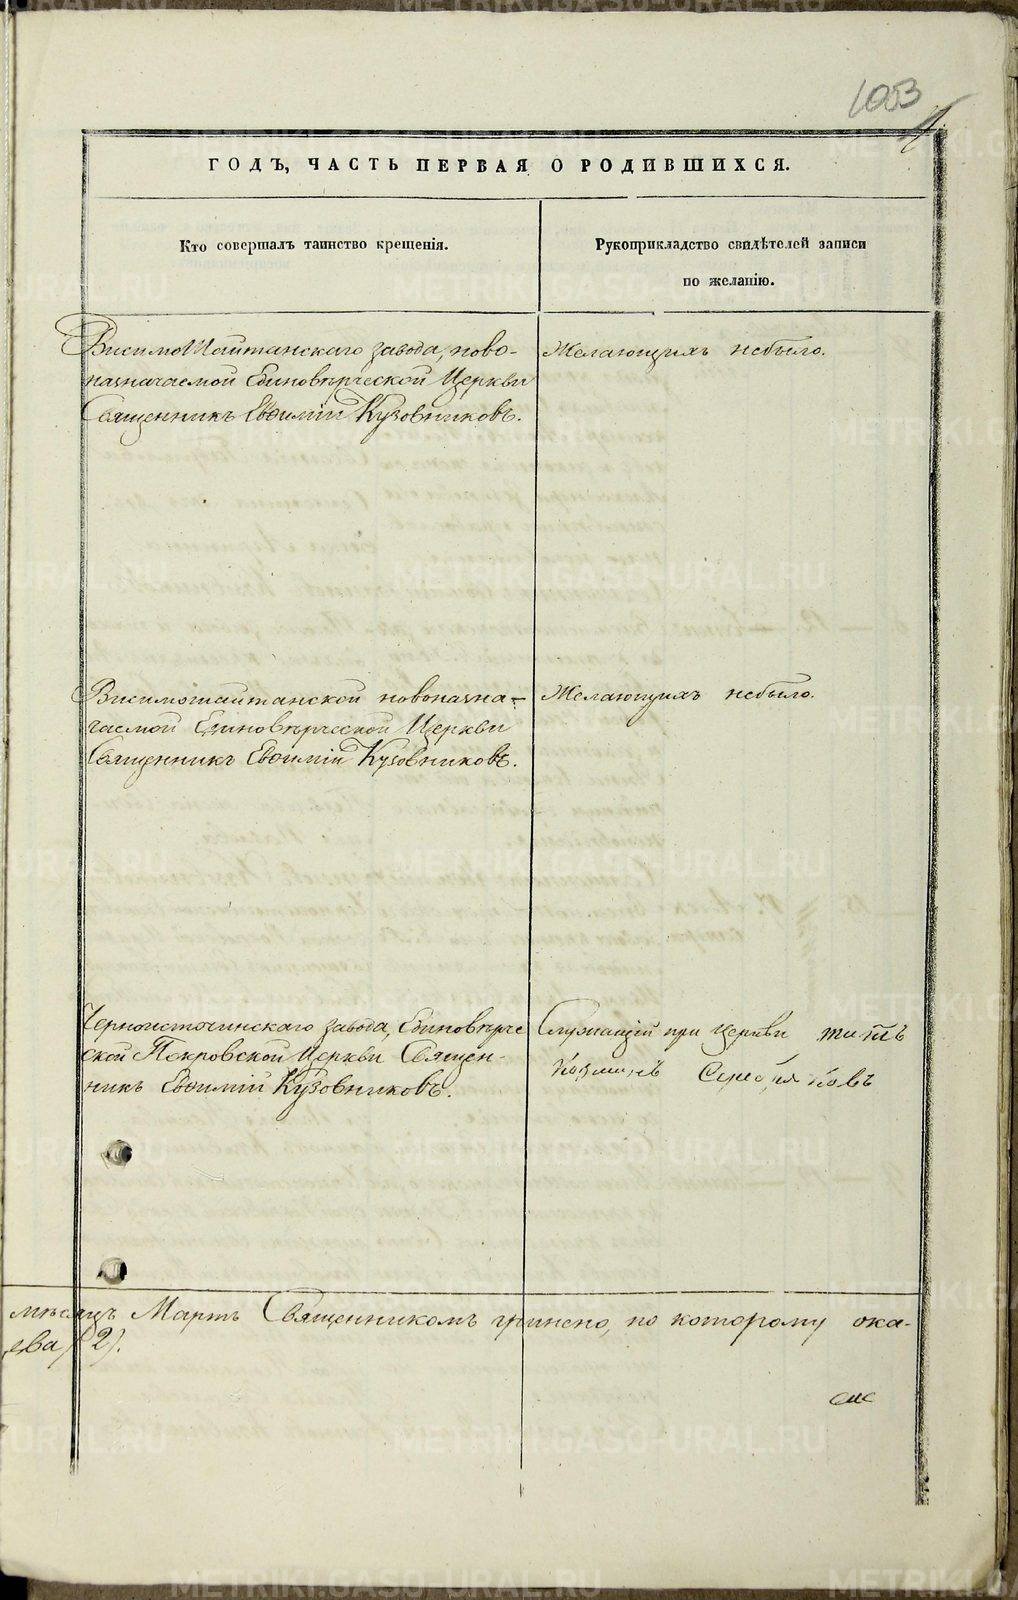 1003
ГОДЪ, ЧАСТЬ ПЕРВАЯ О РОДИВШИХСЯ.
Кто совершалъ таинство крещенія.
Рукоприкладство свидѣтелей записи
по желанію.
ВисимоШайтанскаго завода, ново-
назначаемой Единовѣрческой Церкви
Священникъ Евѳимій Кузовниковъ.
Желающихъ небыло.
Висимошайтанской новоназна-
чаемой Единовѣрческой Церкви
Священникъ Евѳимій Кузовниковъ.
Желающихъ небыло.
Черноисточинскаго завода, Единовѣрче
ской Покровской Церкви Священ-
никъ Евѳимій Кузовниковъ.
Служащій при церкви титъ
Козминъ Серебряковъ
мѣсяцъ Мартъ Священникомъ чинено, по которому ока-
два /2/.
METRIKI.GASO-URAL.RU